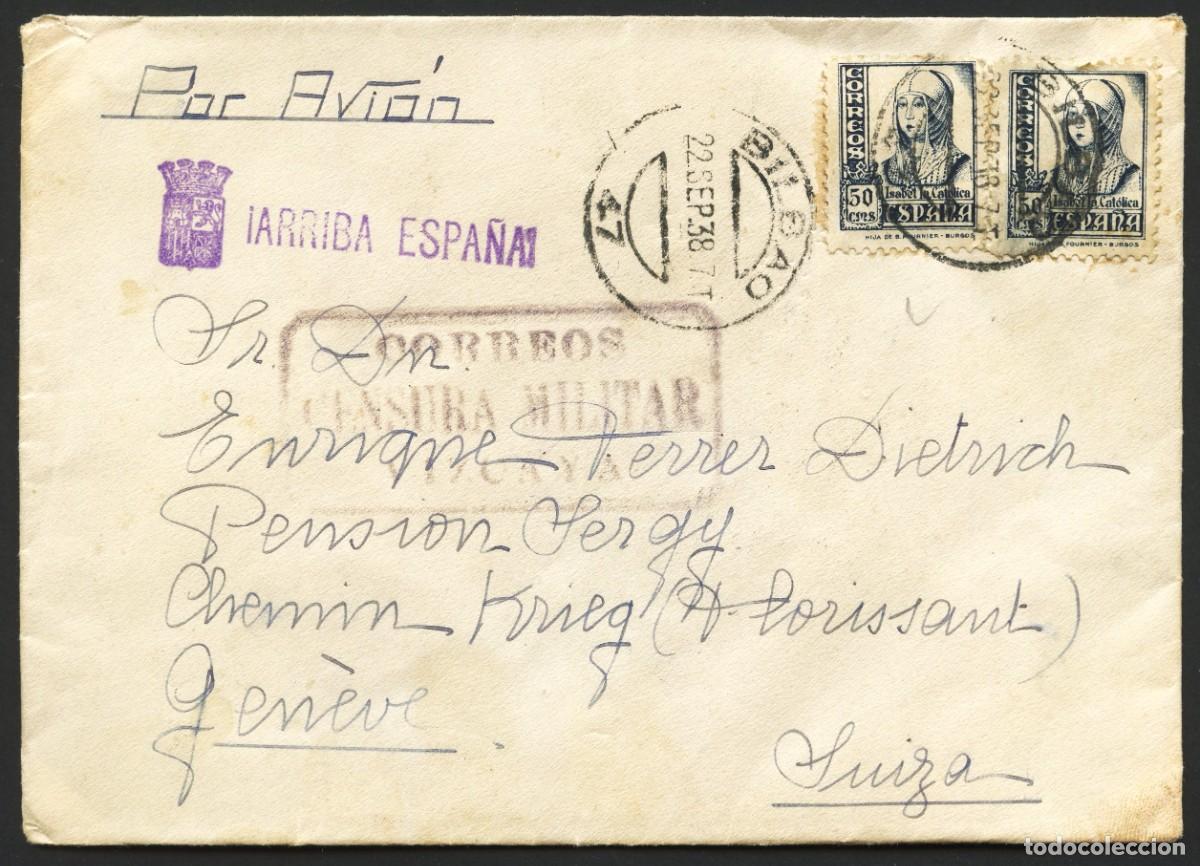 Por Avión
¡ARRIBA ESPAÑA!
BILBAO
22.SEP.38 7.T
47
CORREOS
50 cms
Isabel la Católica
ESPAÑA
HIJA DE B. FOURNIER - BURGOS
CORREOS
50
Isabel la Católica
ESPAÑA
FOURNIER - BURGOS
CORREOS
CENSURA MILITAR
VIZCAYA
Sr. Dn.
Enrique Ferrer Dietrich
Pension Sergy
Chemin Krieg (Florissant)
Genève
Suiza
todocoleccion